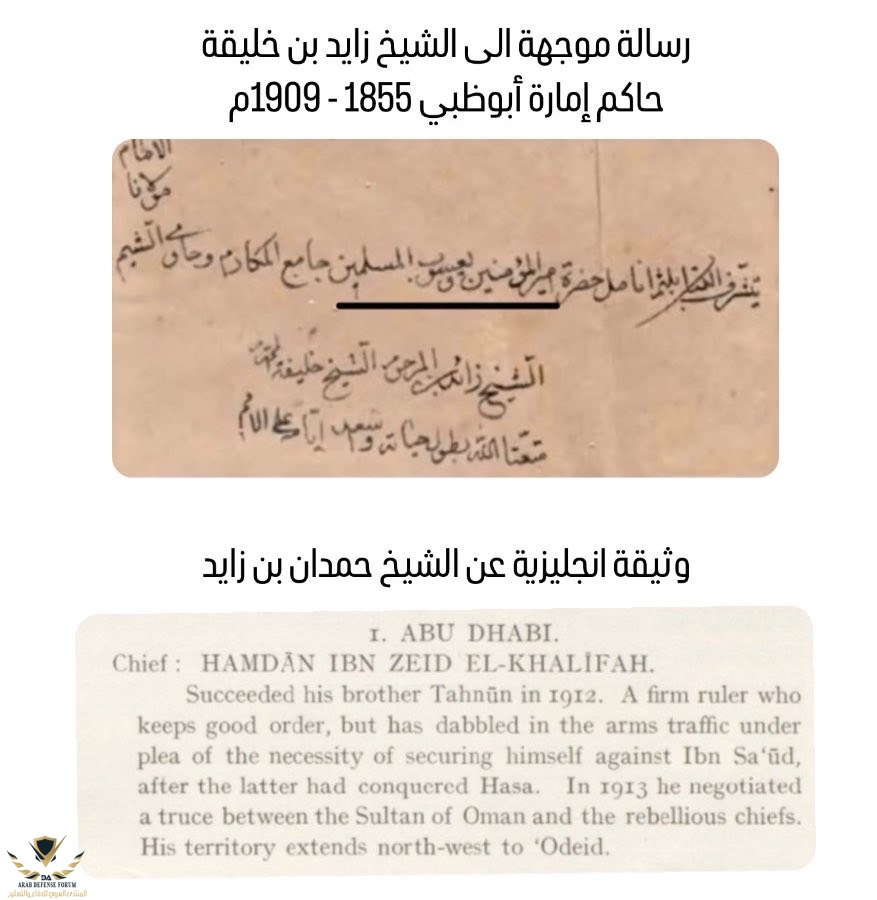 رسالة موجهة الى الشيخ زايد بن خليفة
حاكم إمارة أبوظبي 1855 - 1909م
الامام
مولانا
يتشرف الكتاب بلثم انامل حضرة امير المؤمنين ويعسوب المسلمين جامع المكارم وحاوي الشيم
الشيخ زائد بن المرحوم الشيخ خليفة المحترم
متعنا الله بطول حياته وسعد ايامه على الامم
وثيقة انجليزية عن الشيخ حمدان بن زايد
1. ABU DHABI.
Chief : HAMDĀN IBN ZEID EL-KHALÎFAH.
Succeeded his brother Tahnūn in 1912. A firm ruler who
keeps good order, but has dabbled in the arms traffic under
plea of the necessity of securing himself against Ibn Sa‘ūd,
after the latter had conquered Hasa. In 1913 he negotiated
a truce between the Sultan of Oman and the rebellious chiefs.
His territory extends north-west to ‘Odeid.
DA
ARAB DEFENSE FORUM
المنتدى العربي للدفاع والتسليح